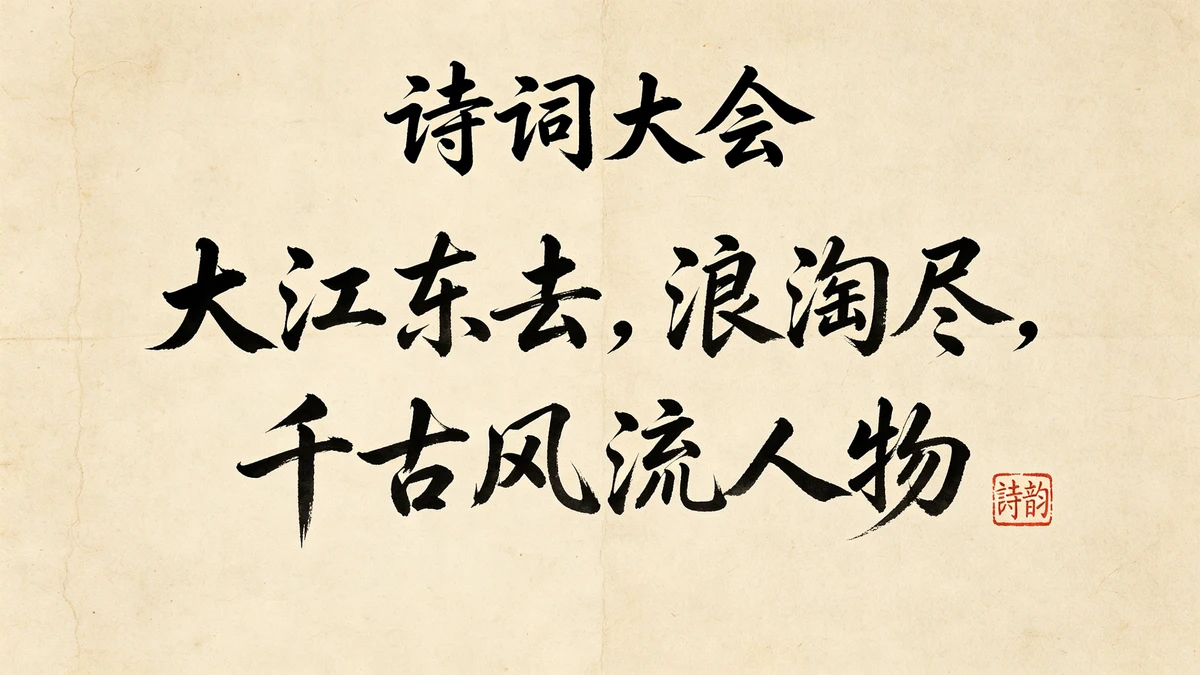 诗词大会
大江东去，浪淘尽，
千古风流人物
詩韵